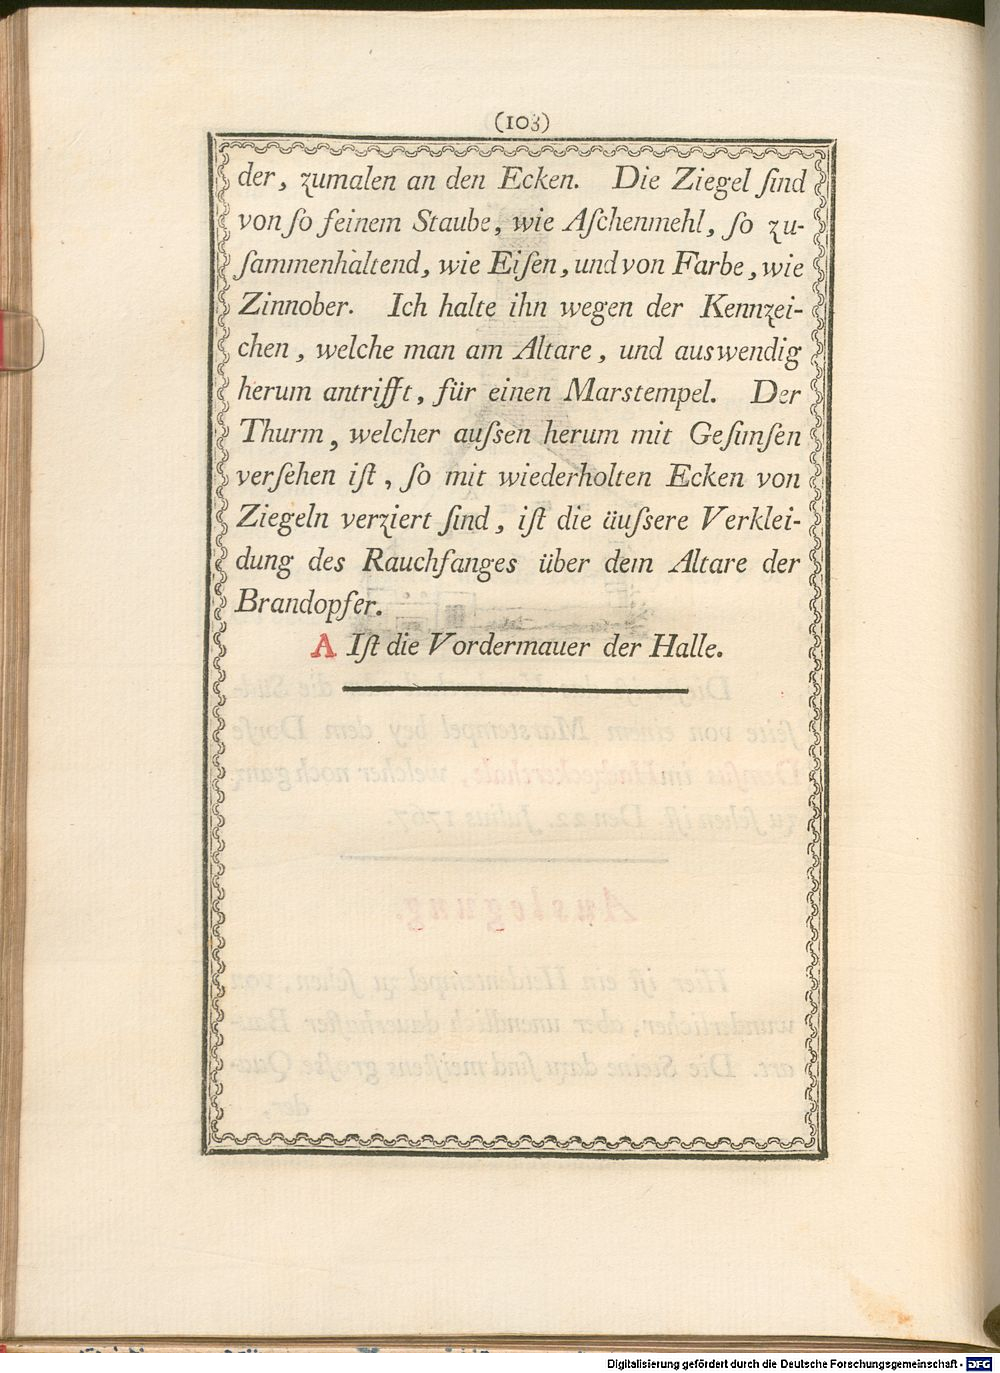 (103)
der, zumalen an den Ecken. Die Ziegel ſind
von ſo feinem Staube, wie Aſchenmehl, ſo zu-
ſammenhaltend, wie Eiſen, und von Farbe, wie
Zinnober. Ich halte ihn wegen der Kennzei-
chen, welche man am Altare, und auswendig
herum antrifft, für einen Marstempel. Der
Thurm, welcher auſsen herum mit Geſimſen
verſehen iſt, ſo mit wiederholten Ecken von
Ziegeln verziert ſind, iſt die äuſsere Verklei-
dung des Rauchfanges über dem Altare der
Brandopfer.
A Iſt die Vordermauer der Halle.
Digitalisierung gefördert durch die Deutsche Forschungsgemeinschaft - DFG